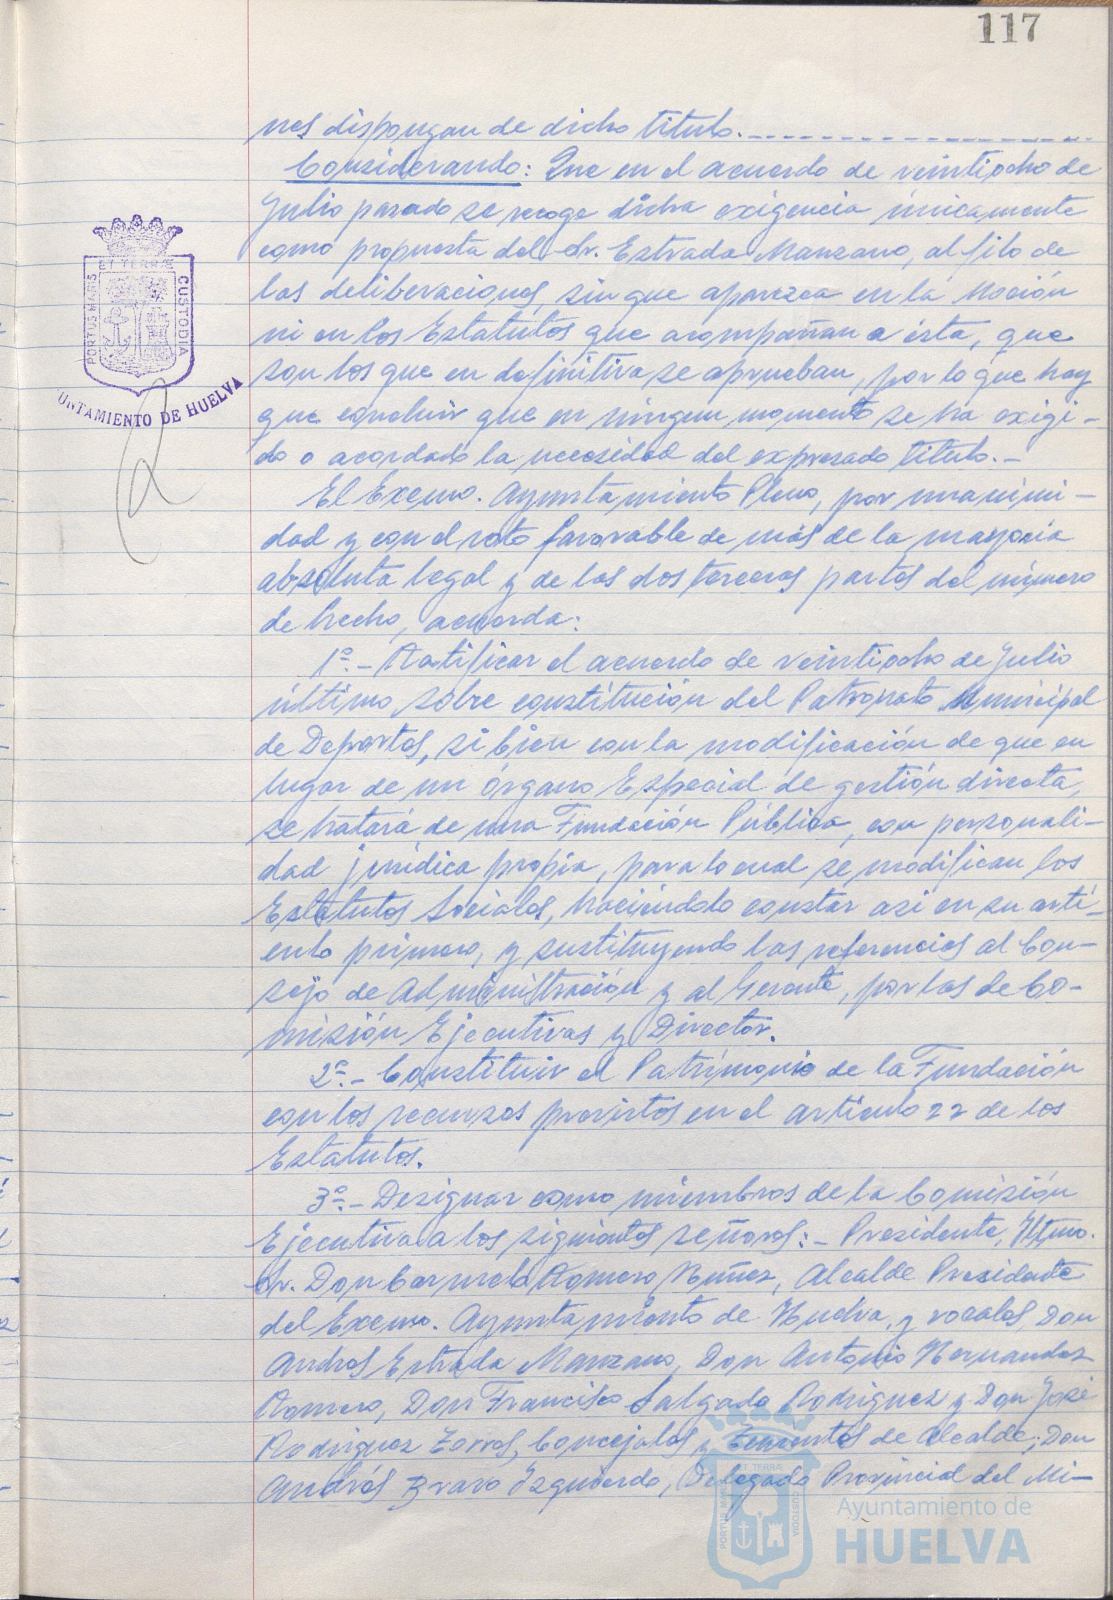 117
nes dispongan de dicho título.
Considerando: Que en el acuerdo de veintiocho de
Julio pasado se recoge dicha exigencia únicamente
como propuesta del Sr. Estrada Manzano, al filo de
las deliberaciones, sin que aparezca en la Moción
ni en los Estatútos que acompañan a ésta, que
son los que en definitiva se aprueban, por lo que hay
que concluir que en ningun momento se ha exigi-
do o acordado la necesidad del expresado título.-
El Excmo. Ayuntamiento Pleno, por unanimi-
dad y con el voto favorable de más de la mayoria
absoluta legal y de las dos terceras partes del número
de hecho, acuerda:
1º.- Ratificar el acuerdo de veintiocho de Julio
último sobre constitución del Patronato Municipal
de Deportes, si bien con la modificación de que en
lugar de un órgano Especial de gestión directa,
se tratará de una Fundación Pública, con personali-
dad jurídica propia, para lo cual se modifican los
Estatutos Sociales, haciéndolo constar asi en su artí-
culo primero, y sustituyendo las referencias al Con-
sejo de Administración y al Gerente, por las de Co-
misión Ejecutivas y Director.
2º.- Constituir el Patrimonio de la Fundación
con los recursos previstos en el artículo 22 de los
Estatutos.
3º.- Designar como miembros de la Comisión
Ejecutiva a los siguientes señores:- Presidente, Iltmo.
Sr. Don Carmelo Romero Nuñez, Alcalde Presidente
del Excmo. Ayuntamiento de Huelva, y vocales Don
Andres Estrada Manzano, Don Antonio Hernandez
Romero, Don Francisco Salgado Rodriguez y Don José
Rodriguez Zorros, Concejales y Tenientes de Alcalde; Don
Andrés Bravo Izquierdo, Delegado Provincial del Mi-
PORTUS MARIS ET TERRÆ CUSTODIA
UNTAMIENTO DE HUELVA
PORTUS MARIS ET TERRÆ CUSTODIA
Ayuntamiento de
HUELVA